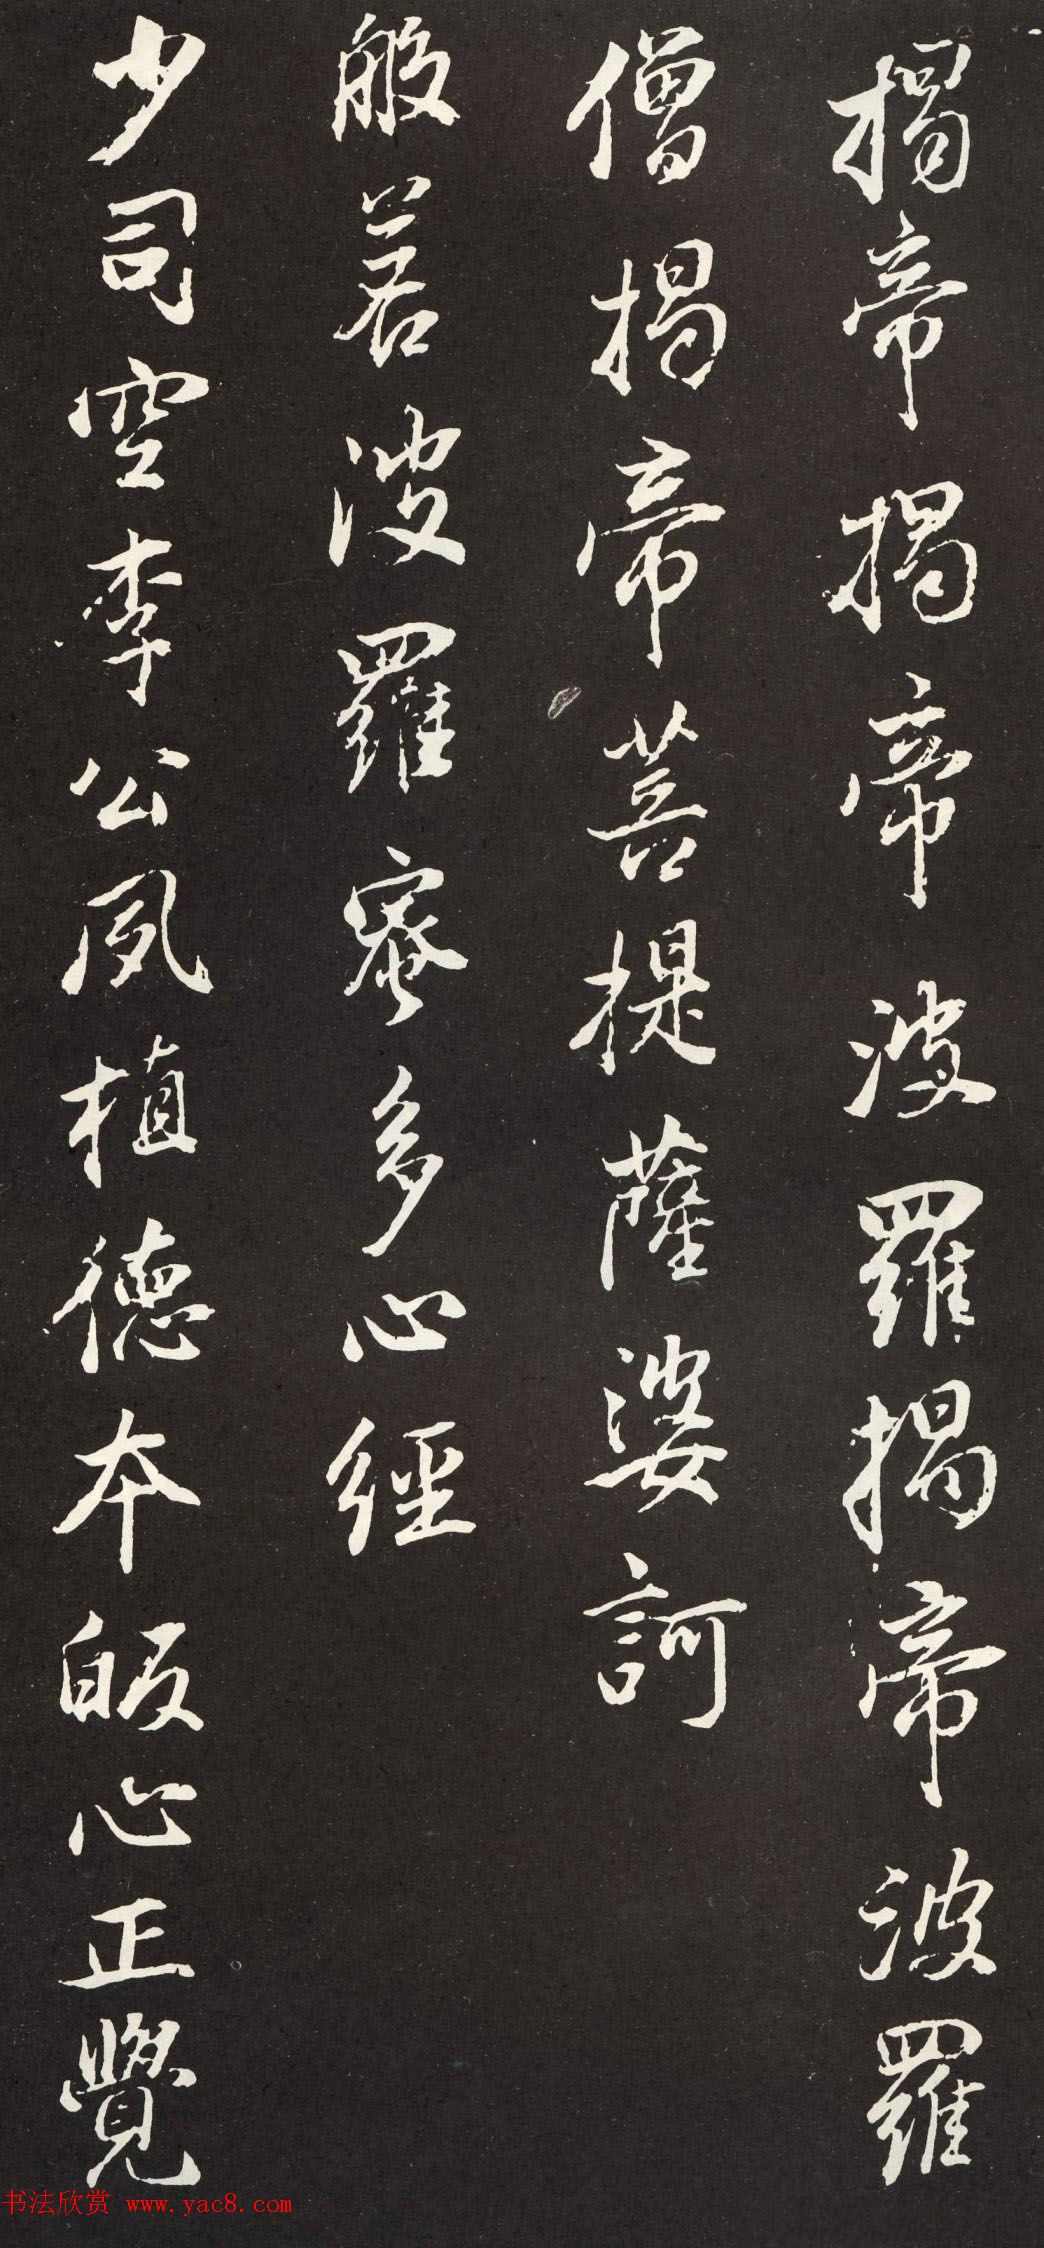 揭帝揭帝波羅揭帝波羅
僧揭帝菩提薩婆訶
般若波羅蜜多心經
少司空李公夙植德本皈心正覺
书法欣赏 www.yac8.com